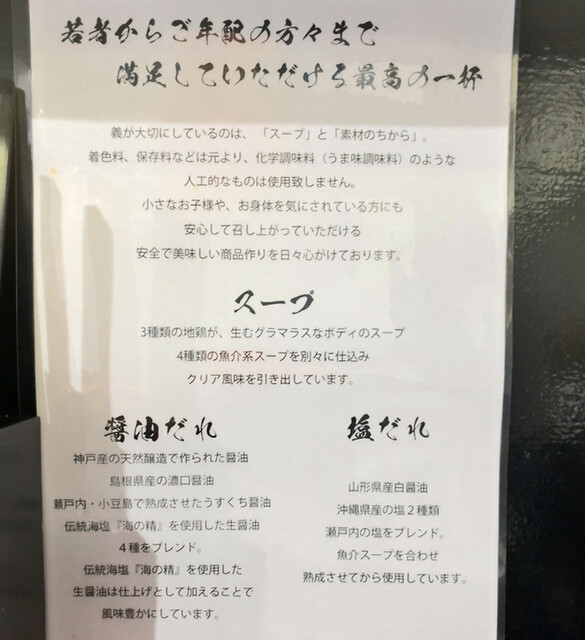 若者からご年配の方々まで
満足していただける最高の一杯
義が大切にしているのは、「スープ」と「素材のちから」。
着色料、保存料などは元より、化学調味料（うま味調味料）のような
人工的なものは使用致しません。
小さなお子様や、お身体を気にされている方にも
安心して召し上がっていただける
安全で美味しい商品作りを日々心がけております。
スープ
3種類の地鶏が、生むグラマラスなボディのスープ
4種類の魚介系スープを別々に仕込み
クリア風味を引き出しています。
醤油だれ
神戸産の天然醸造で作られた醤油
島根県産の濃口醤油
瀬戸内・小豆島で熟成させたうすくち醤油
伝統海塩『海の精』を使用した生醤油
４種をブレンド。
伝統海塩『海の精』を使用した
生醤油は仕上げとして加えることで
風味豊かにしています。
塩だれ
山形県産白醤油
沖縄県産の塩２種類
瀬戸内の塩をブレンド。
魚介スープを合わせ
熟成させてから使用しています。